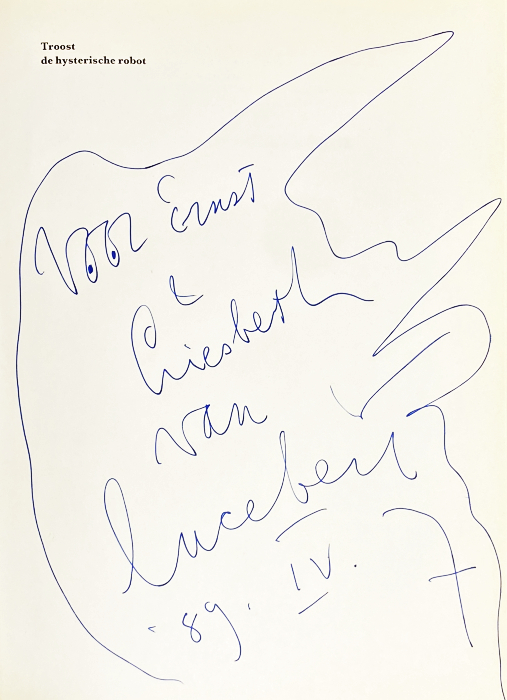 Troost
de hysterische robot
Voor Ernst
&
Liesbeth
van
Lucebert
'89. IV. 7